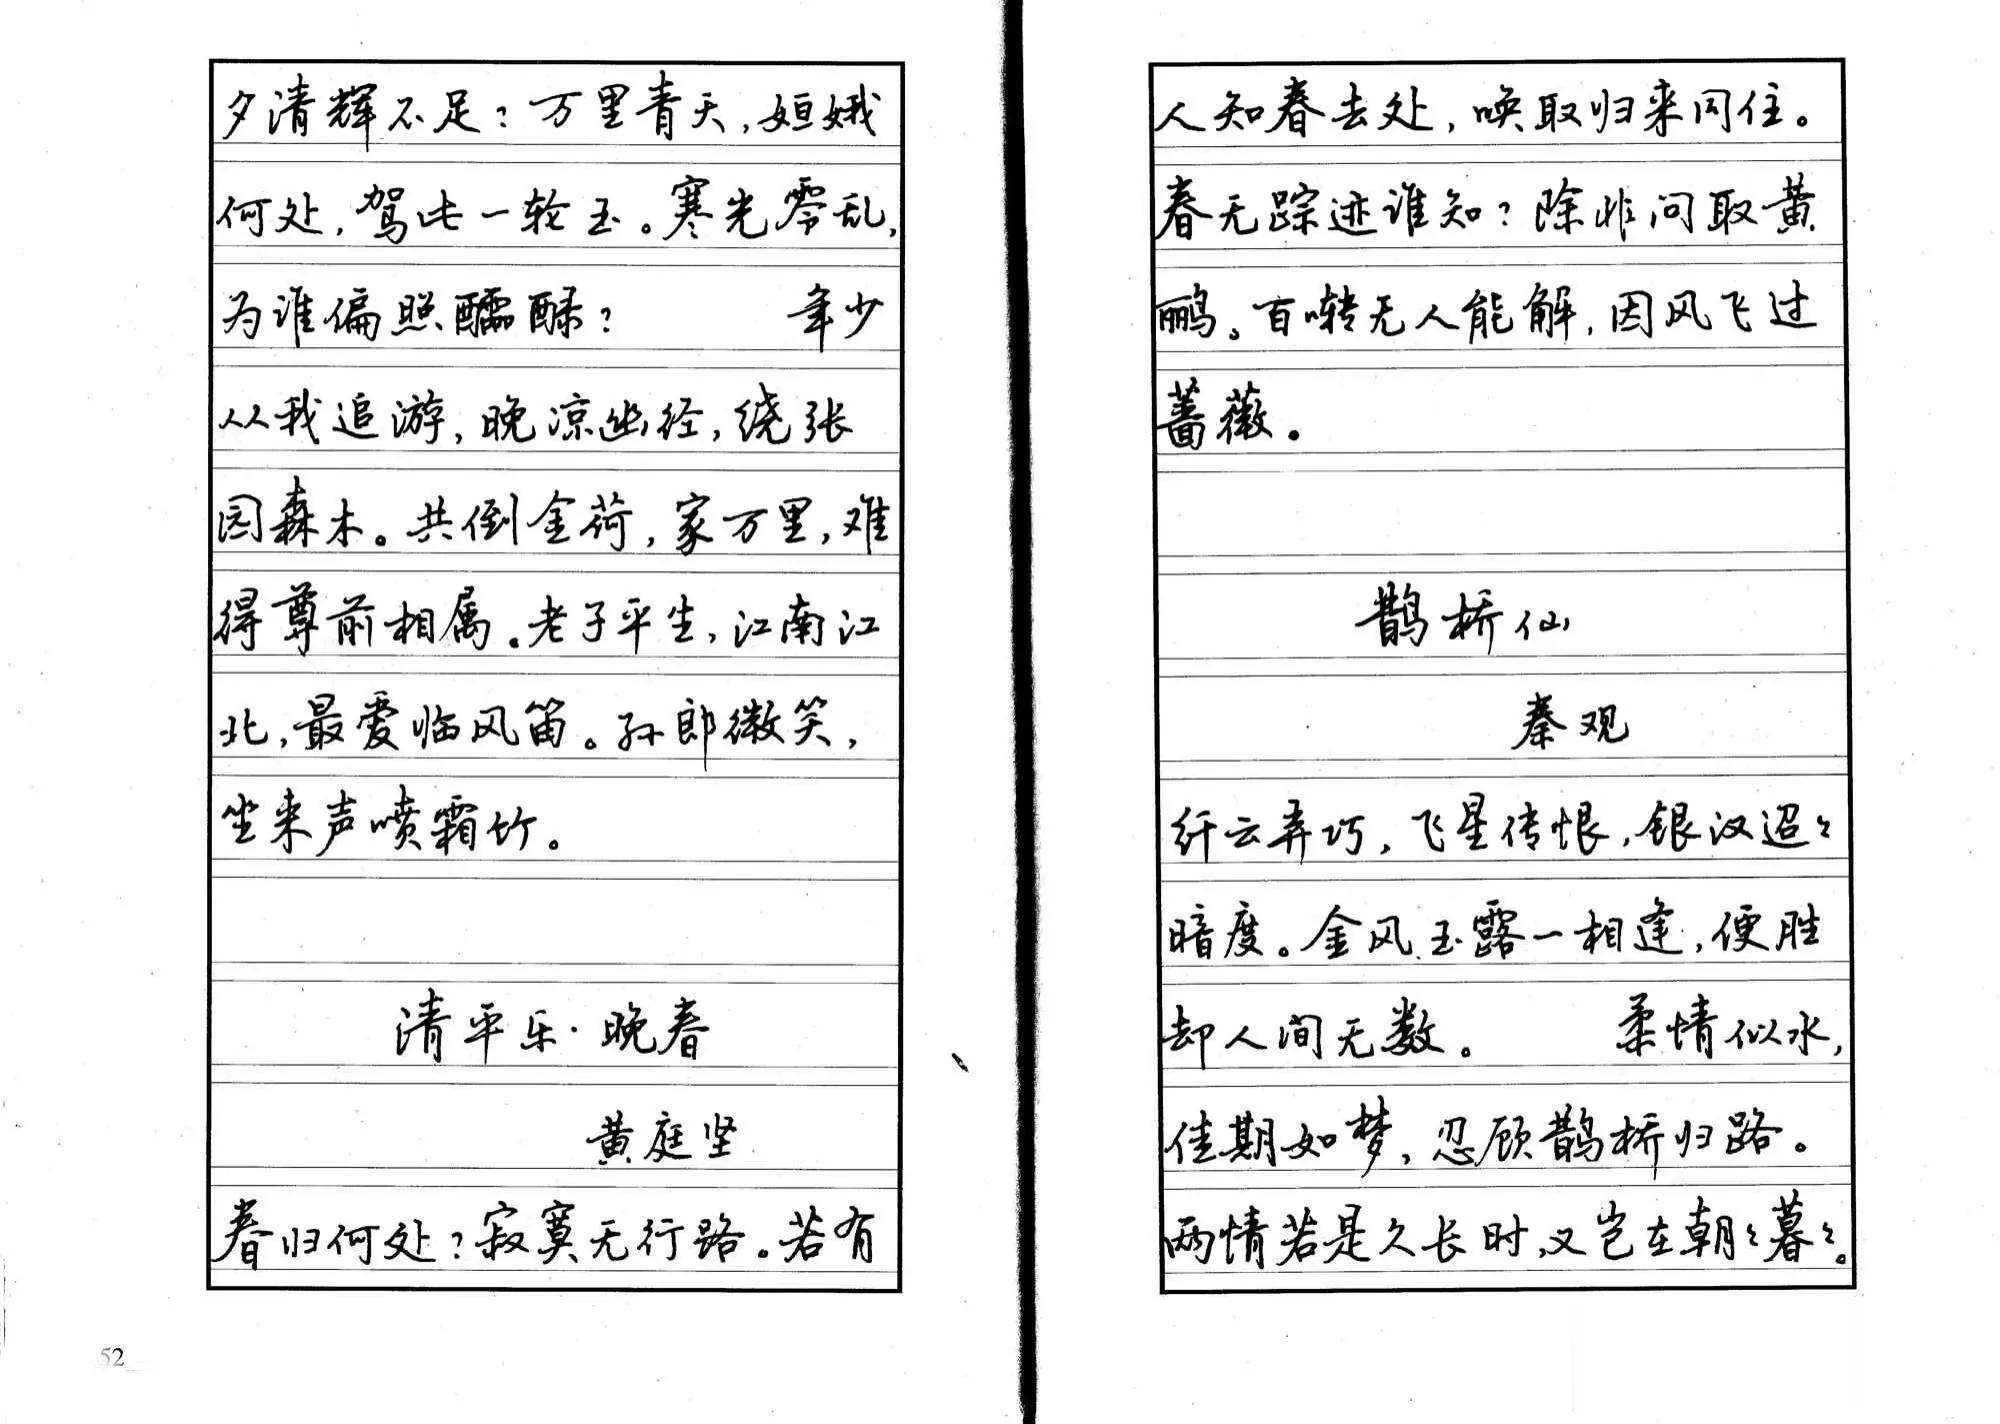 夕清辉不足?万里青天,姮娥
何处,驾此一轮玉。寒光零乱,
为谁偏照醽醁?　　年少
从我追游,晚凉幽径,绕张
园森木。共倒金荷,家万里,难
得尊前相属。老子平生,江南江
北,最爱临风笛。孙郎微笑,
坐来声喷霜竹。
清平乐·晚春
黄庭坚
春归何处?寂寞无行路。若有
52
人知春去处,唤取归来同住。
春无踪迹谁知?除非问取黄
鹂。百啭无人能解,因风飞过
蔷薇。
鹊桥仙
秦观
纤云弄巧,飞星传恨,银汉迢々
暗度。金风玉露一相逢,便胜
却人间无数。　　柔情似水,
佳期如梦,忍顾鹊桥归路。
两情若是久长时,又岂在朝々暮々。